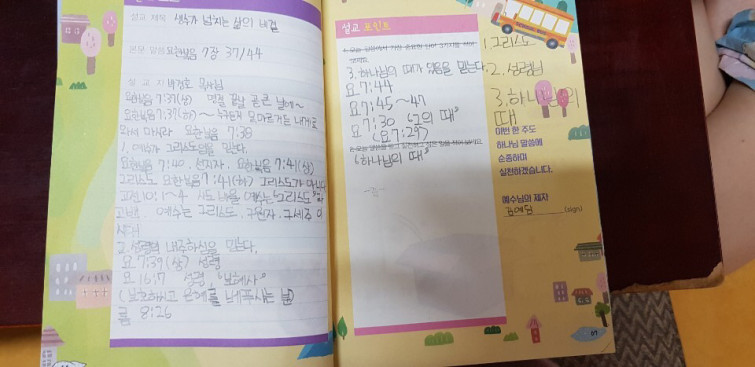 설교 제목 생수가 넘치는 삶의 비결
본문 말씀 요한복음 7장 37/44
설 교 자 목사님
요한복음 7:37(상) 명절 끝날 곧 큰 날에~
요한복음 7:37(하)~ 누구든지 목마르거든 내게로
와서 마시라 요한복음 7:38
1. 예수가 그리스도임을 믿는다.
요한복음 7:40. 선지자. 요한복음 7:41(상)
그리스도 요한복음 7:41(하) 그리스도가
고전 10:1~4 사도 바울 예수는 "그리스도"
고백. 예수는 그리스도, 구원자, 구세주 이
시다!
2. 성령의 내주하심을 믿는다.
요 7:39(상) 성령
요 16:7 성령 "보혜사"
(보호하시고 은혜를 베푸시는 분)
롬 8:26
설교 포인트
3. 하나님의 때가 있음을 믿는다.
요 7:44
요 7:45~47
요 7:30 "그의 때"
(요 7:29)
"하나님의 때"
1. 그리스도
2. 성령님
3. 하나님의
때
이번 한 주도
하나님 말씀에
순종하며
실천하겠습니다.
예수님의 제자
김예담 (sign)
61